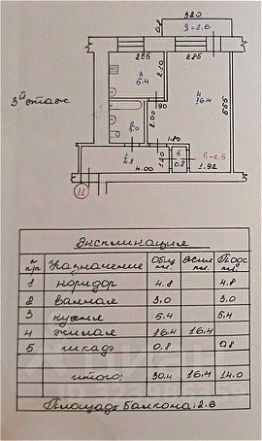 320
S=2.6
255
285
3
5.4
2.10
4
16.4
3й этаж
90
5.65
2
3.0
2.00
1.80
1
4.8
5
0.8
h=2.5
4.00
1.20
1.92
11
Экспликация
п п/п Назначение Общ пл. Жил пл. Подс пл.
1 коридор 4.8 4.8
2 ванная 3.0 3.0
3 кухня 5.4 5.4
4 жилая 16.4 16.4
5 шкаф 0.8 0.8
итого: 30.4 16.4 14.0
Площадь балкона: 2.6